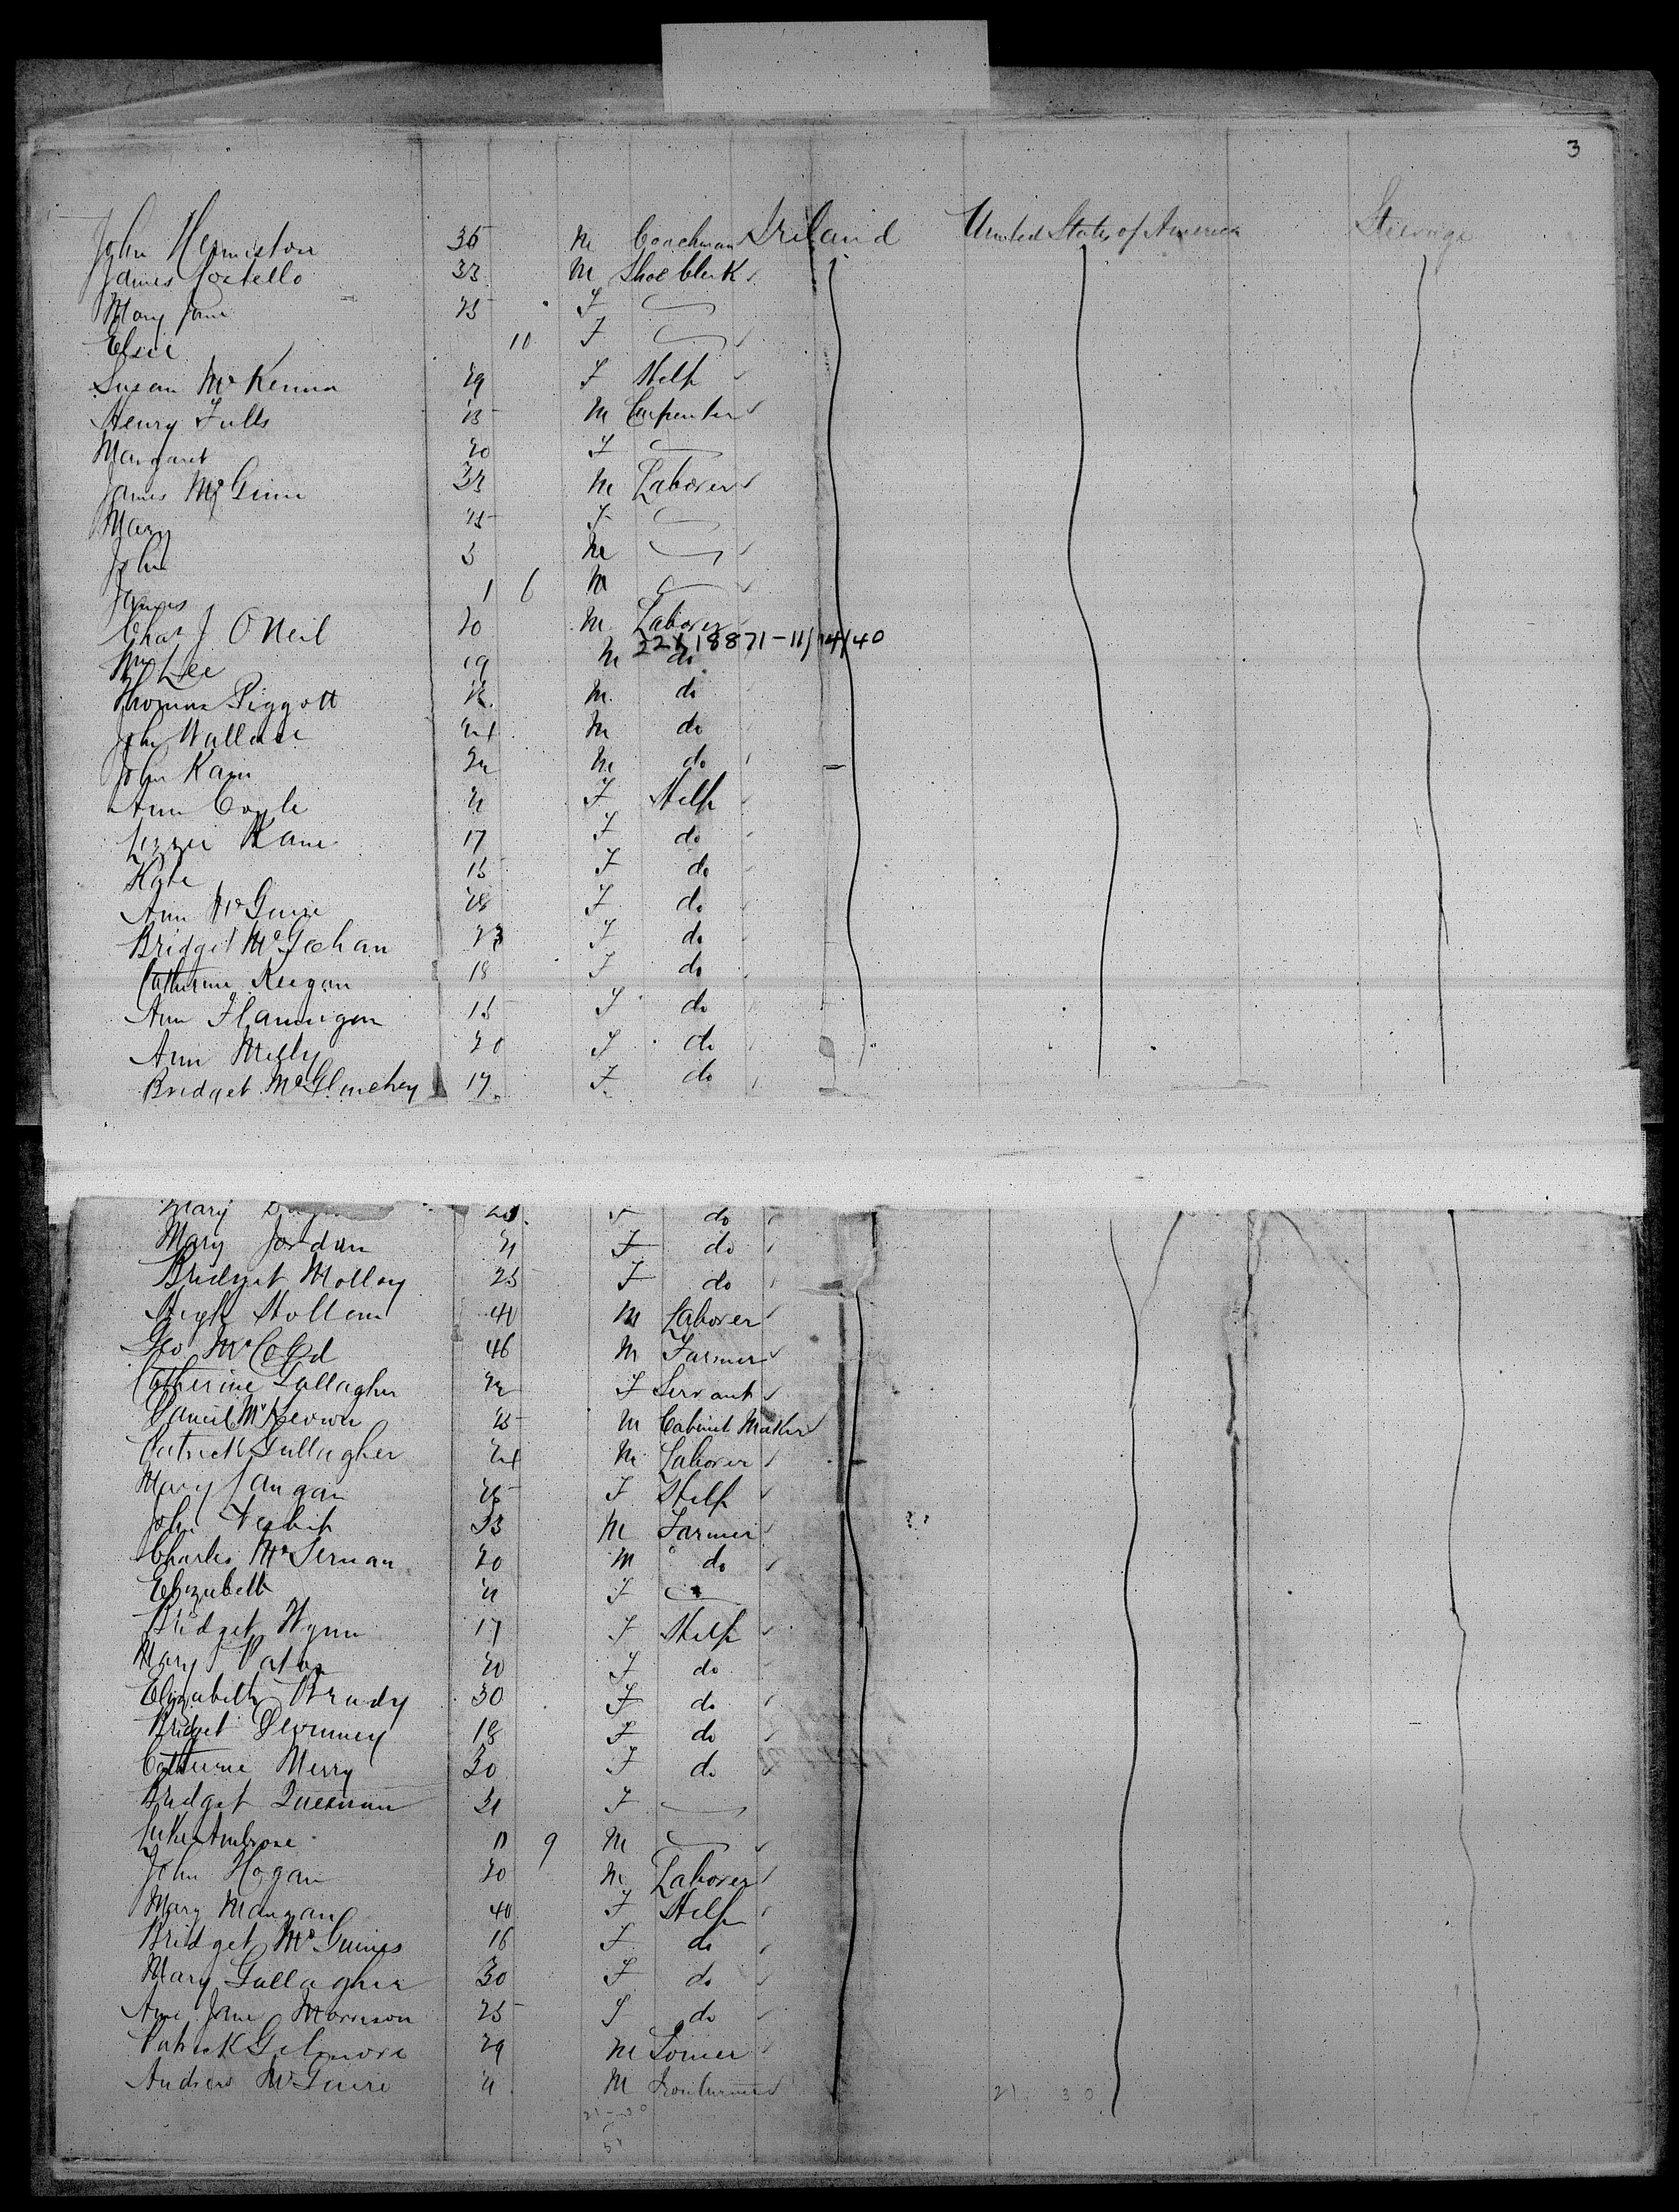 3
John Hermiston 35 M Coachman Ireland United States of America Steerage
James Costello 33 M Shoe Clerk
Mary Jane 25 F
Elsie 10 F
Susan McKenna 29 F Help
Henry Fulls 25 M Carpenter
Margaret 20 F
James McGinn 33 M Laborer
Mary 25 F
John 3 M
James 1 6 M
Chas J O'Neil 20 M Laborer
22X18871-11/14/40
Wm Lee 19 M do
Thomas Piggott M do
John Wallace 24 M do
John Kain 22 M do
Ann Coyle 21 F Help
Lizzie Kane 17 F do
Kate 15 F do
Ann McGuire 28 F do
Bridget McGeehan 23 F do
Catherine Keegan 18 F do
Ann Flannigan 15 F do
Ann Melly 20 F do
Bridget McGlinchey 17 F do
Mary F do
Mary Jordan 21 F do
Bridget Molloy 25 F do
Hugh Hollan 40 M Laborer
Geo 46 M Farmer
Catherine Gallagher 22 F Servant
Daniel McKeown 25 M Cabinet Maker
Patrick Gallagher 24 M Laborer
Mary Langan 25 F Help
John Nesbit 33 M Farmer
Charles McTernan 20 M do
Elizabeth 21 F
Bridget Wynn 17 F Help
Mary 20 F do
Elizabeth Brady 30 F do
Bridget Devinney 18 F do
Catherine Merry 30 F do
Bridget Queenan 31 F
Luke Ambrose 9 M
John Hogan 20 M Laborer
Mary Mangan 40 F Help
Bridget McGuines 16 F do
Mary Gallagher 30 F do
Ann Jane Morrison 25 F do
Patrick Gilmore 29 M Joiner
Andrew McGuire 21 M Iron turner
21 30
21-30
51